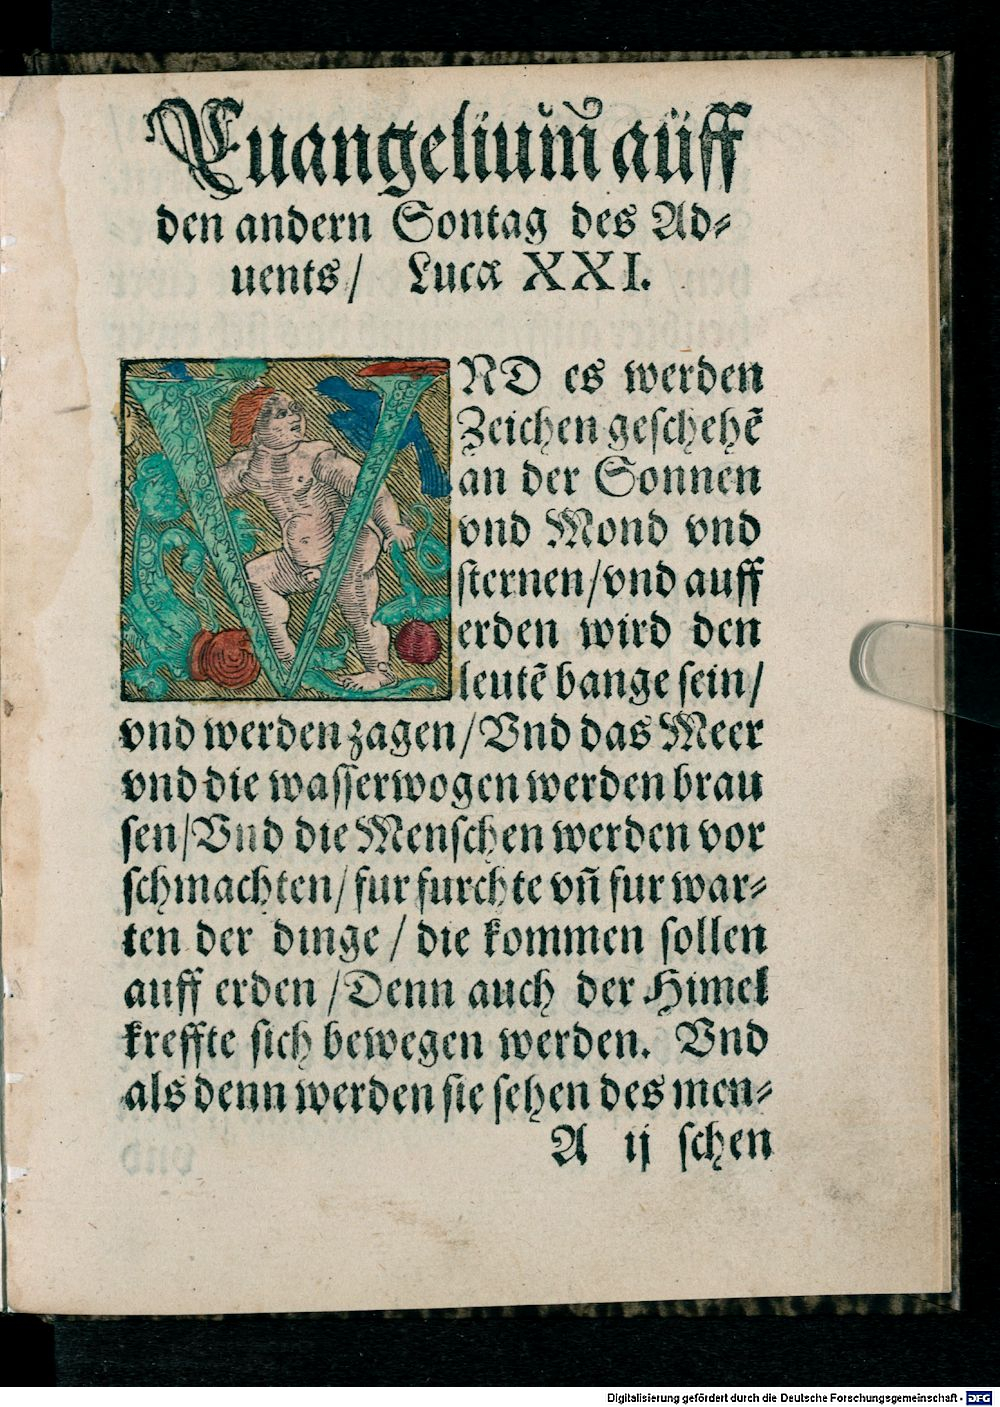 Euangeliũm̃ aüff
den andern Sontag des Ad⸗
uents/ Lucæ XXI.
VND es werden
Zeichen geschehẽ
an der Sonnen
vnd Mond vnd
sternen/vnd auff
erden wird den
leutẽ bange sein/
vnd werden zagen/Vnd das Meer
vnd die wasserwogen werden brau
sen/Vnd die Menschen werden vor
schmachten/fur furchte vñ fur war⸗
ten der dinge/die kommen sollen
auff erden/Denn auch der Himel
kreffte sich bewegen werden. Vnd
als denn werden sie sehen des men⸗
A ij schen
Digitalisierung gefördert durch die Deutsche Forschungsgemeinschaft - DFG